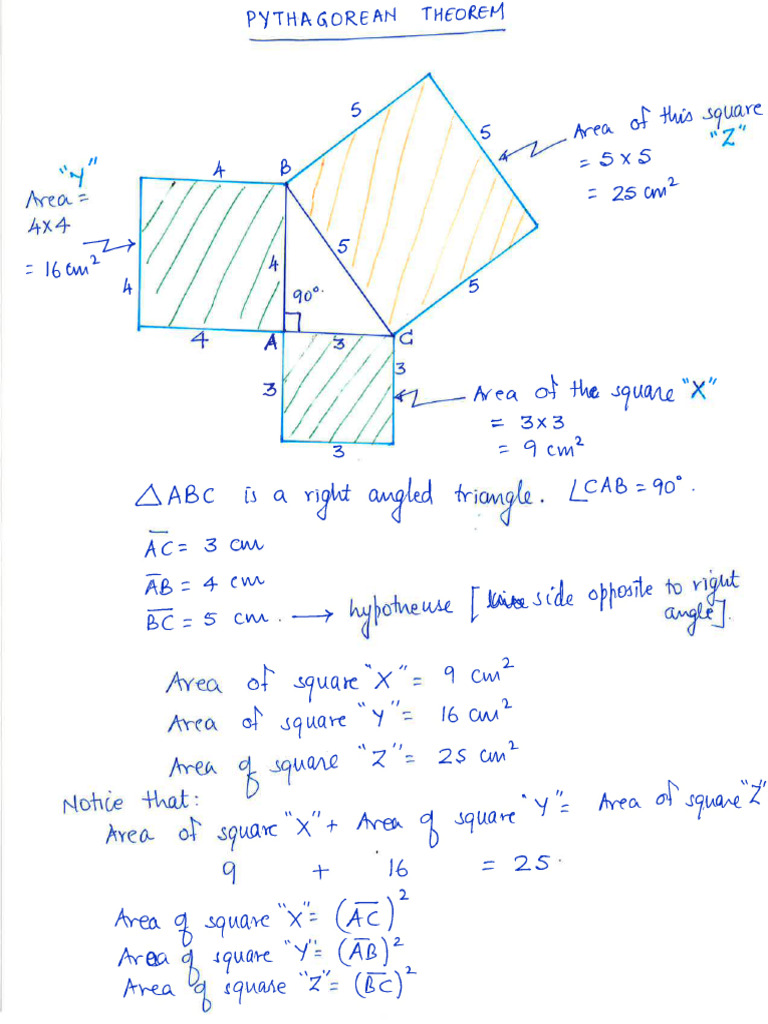 PYTHAGOREAN THEOREM
5
5
Area of this square
"Z"
= 5 x 5
= 25 cm²
"Y"
Area =
4x4
= 16 cm²
4
B
4
4
5
90°.
5
4
A
3
C
3
3
3
Area of the square "X"
= 3 x 3
= 9 cm²
△ABC is a right angled triangle. ∠CAB = 90°.
A̅C̅ = 3 cm
A̅B̅ = 4 cm
B̅C̅ = 5 cm. → hypotheuse [ side opposite to right
angle].
Area of square "X" = 9 cm²
Area of square "Y" = 16 cm²
Area of square "Z" = 25 cm²
Notice that:
Area of square "X" + Area of square "Y" = Area of square "Z"
9 + 16 = 25.
Area of square "X" = (A̅C̅)²
Area of square "Y" = (A̅B̅)²
Area of square "Z" = (B̅C̅)²